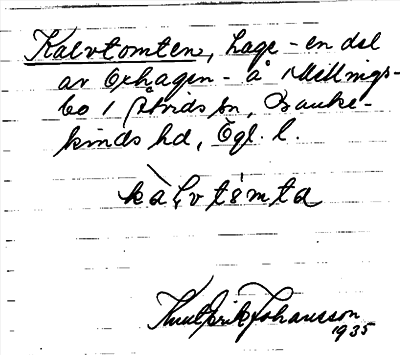 Kalvtomten, hage - en del
av Oxhagen - å Mellings-
bo i Åtvids sn, Banke-
kinds hd, Ögl. l.
kàl̥vtómta
Knut Erik Johansson
1935